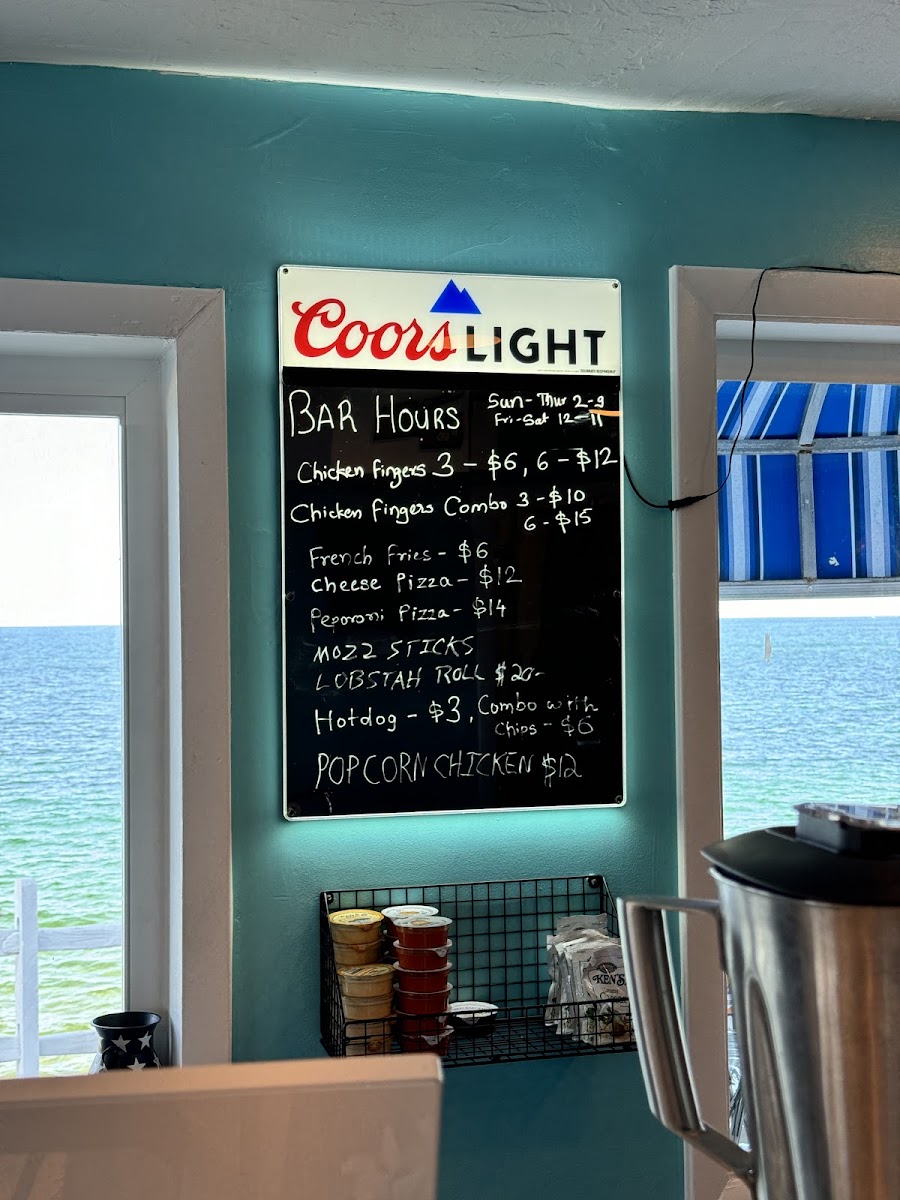 Coors LIGHT
BAR HOURS Sun-Thur 2-9
Fri-Sat 12-11
Chicken fingers 3 - $6, 6 - $12
Chicken fingers Combo 3 - $10
6 - $15
French Fries - $6
Cheese Pizza - $12
Peporoni Pizza - $14
MOZZ STICKS
LOBSTAH ROLL $20-
Hotdog - $3, Combo with
Chips - $6
POPCORN CHICKEN $12
KEN'S